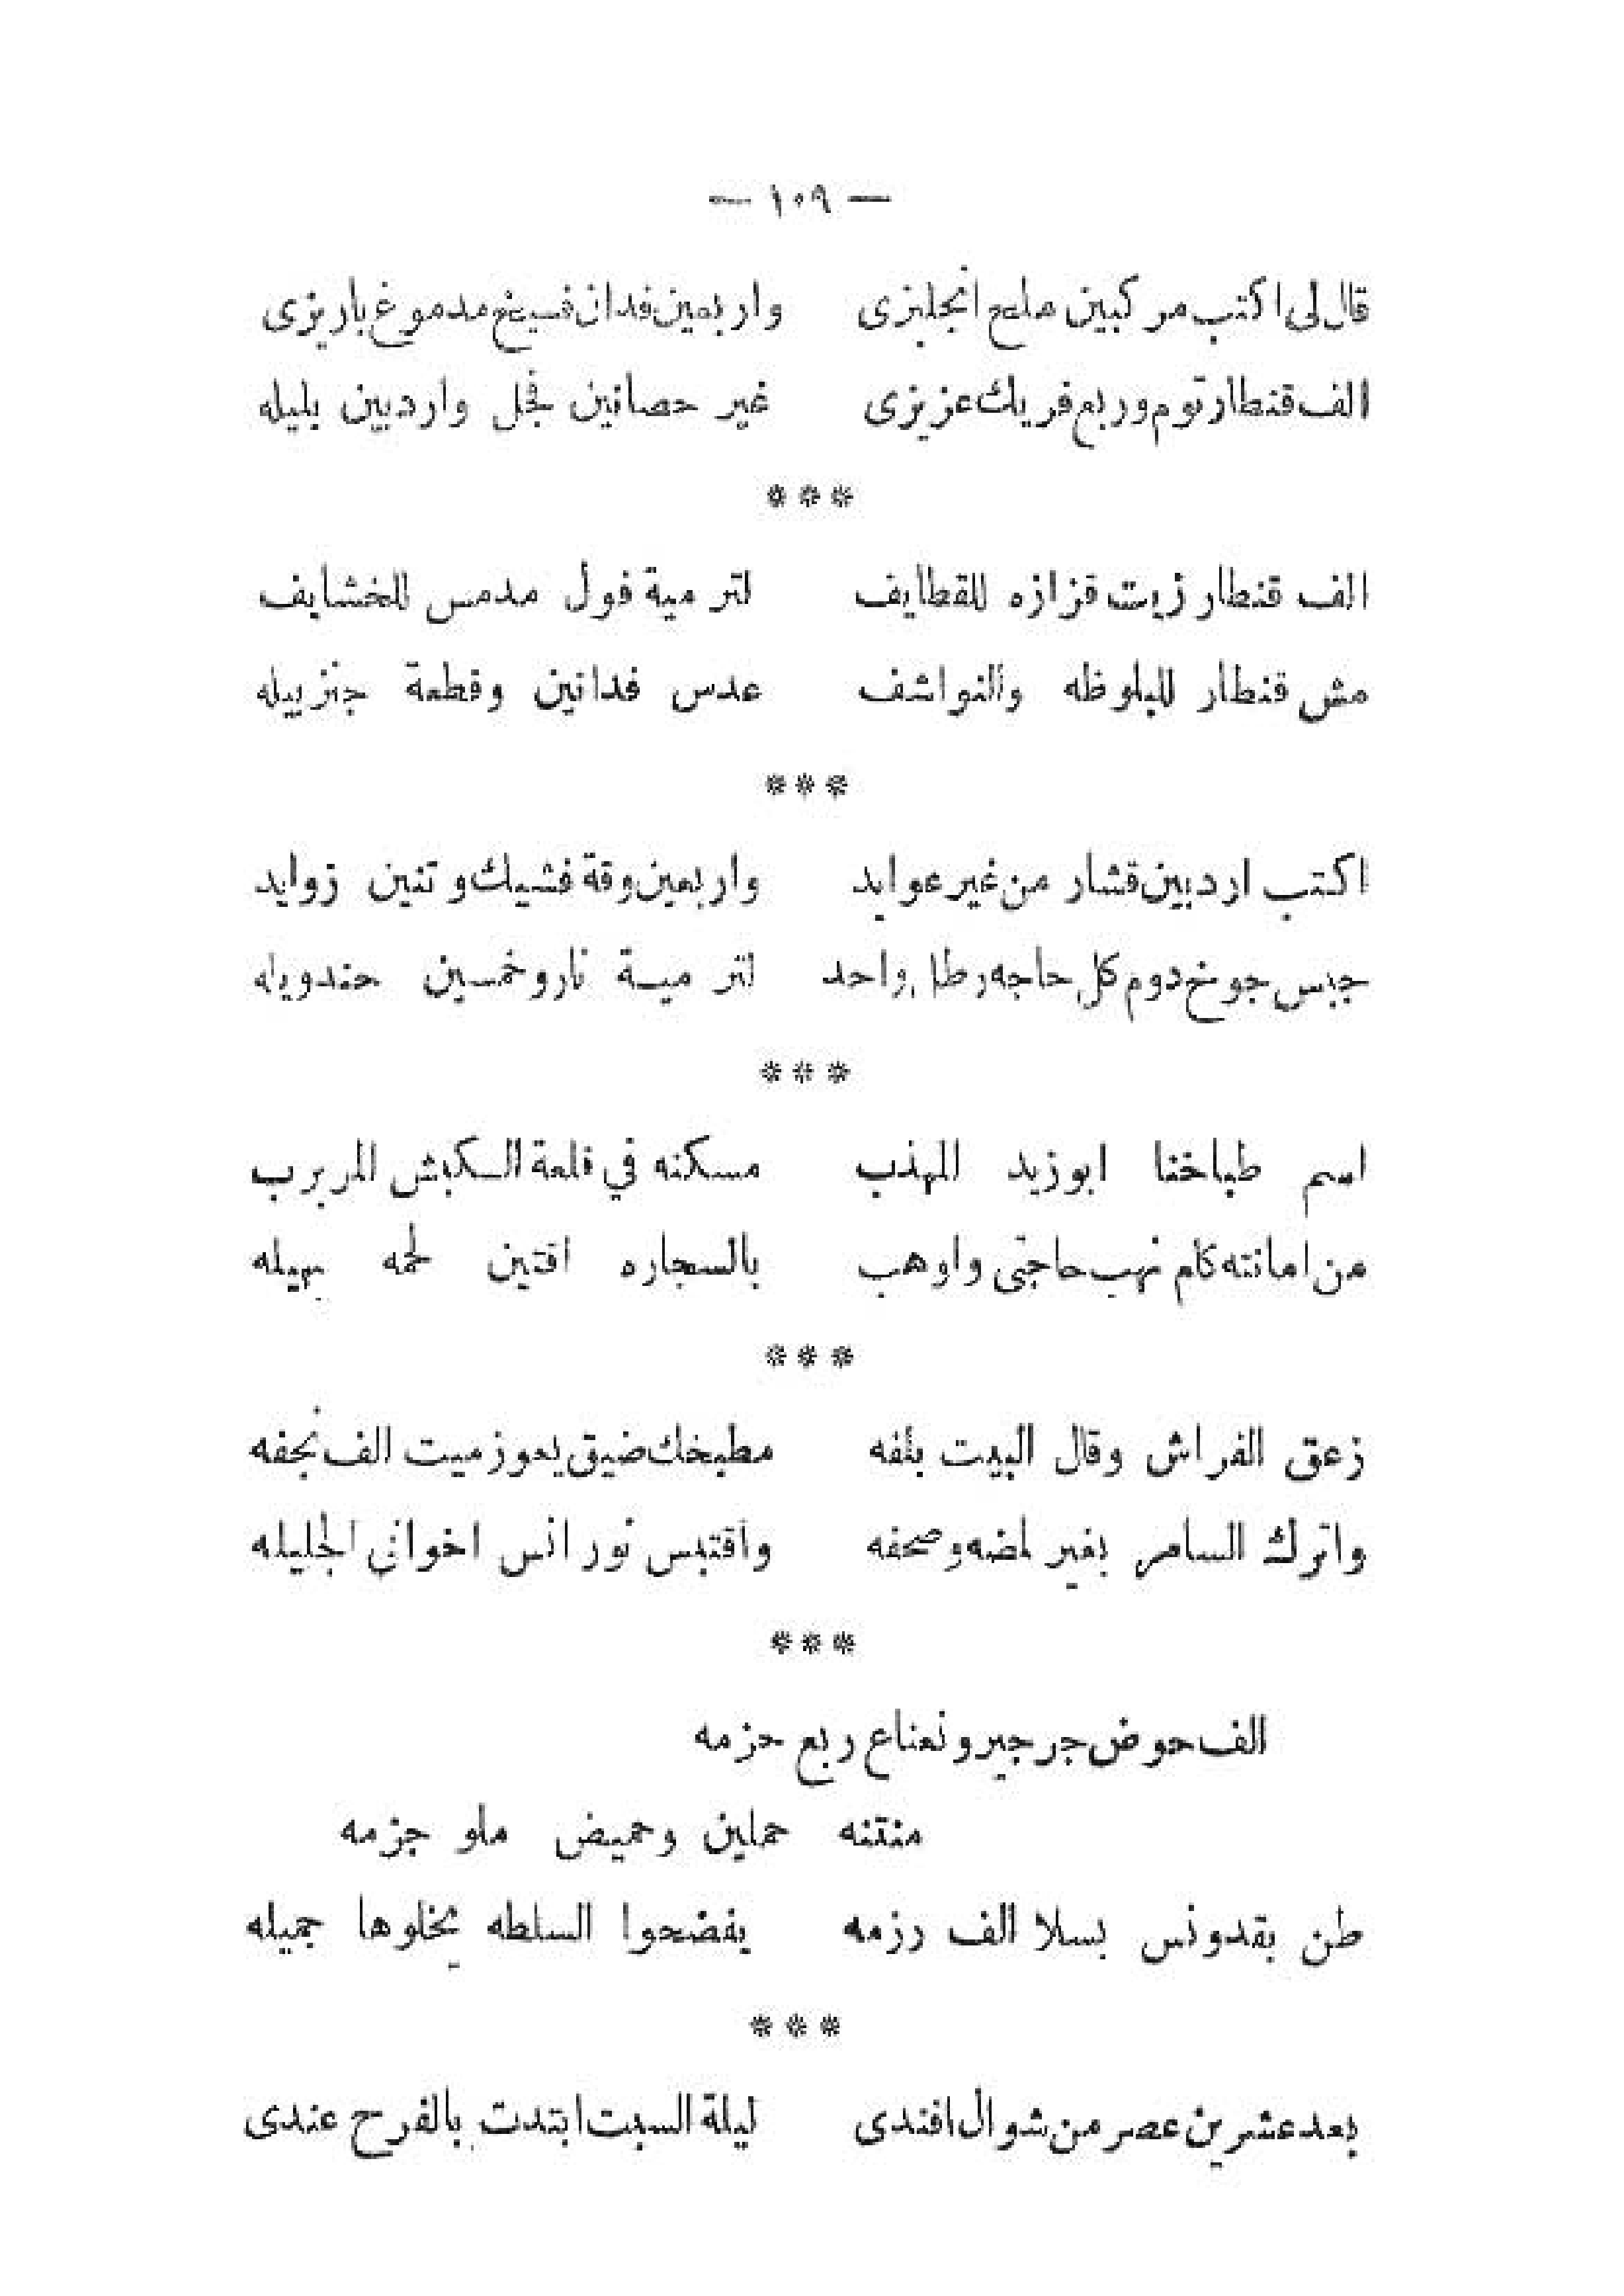 — ١٠٩ —
قال لى اكتب مركبين ملح انجليزى واربعين فدان فسيخ مدموغ باريزى
الف قنطار توم وربع فريك عزيزى غير حصانين فجل واردبين بليله
***
الف قنطار زيت قزازه للقطايف لتر مية فول مدمس للخشايف
مش قنطار للبلوظه والنواشف عدس فدانين وقطعة جنزبيله
***
اكتب اردبين قشار من غير عوايد واربعين وقة فشيك وتنين زوايد
جبس جوخ دوم كل حاجه رطل واحد لتر ميـة نار وخمسين حندويله
***
اسم طباخنا ابو زيد المهذب مسكنه في قلعة الـكبش المربرب
من امانته كام نهب حاجتى واوهب بالسجاره اقتين لحمه بهيله
***
زعق الفراش وقال البيت بلفه مطبخك ضيق يعوز ميت الف نجفه
واترك السامر بغير لمضه وصحفه وأقتبس نور انس اخوانى الجليله
***
الف حوض جرجير ونعناع ربع حزمه
منتنه حملين وحميض ملو جزمه
طن بقدونس بسلا الف رزمه يفضحوا السلطه يخلوها جميله
***
بعد عشرين عصر من شوال افندى ليلة السبت ابتدت بالفرح عندى